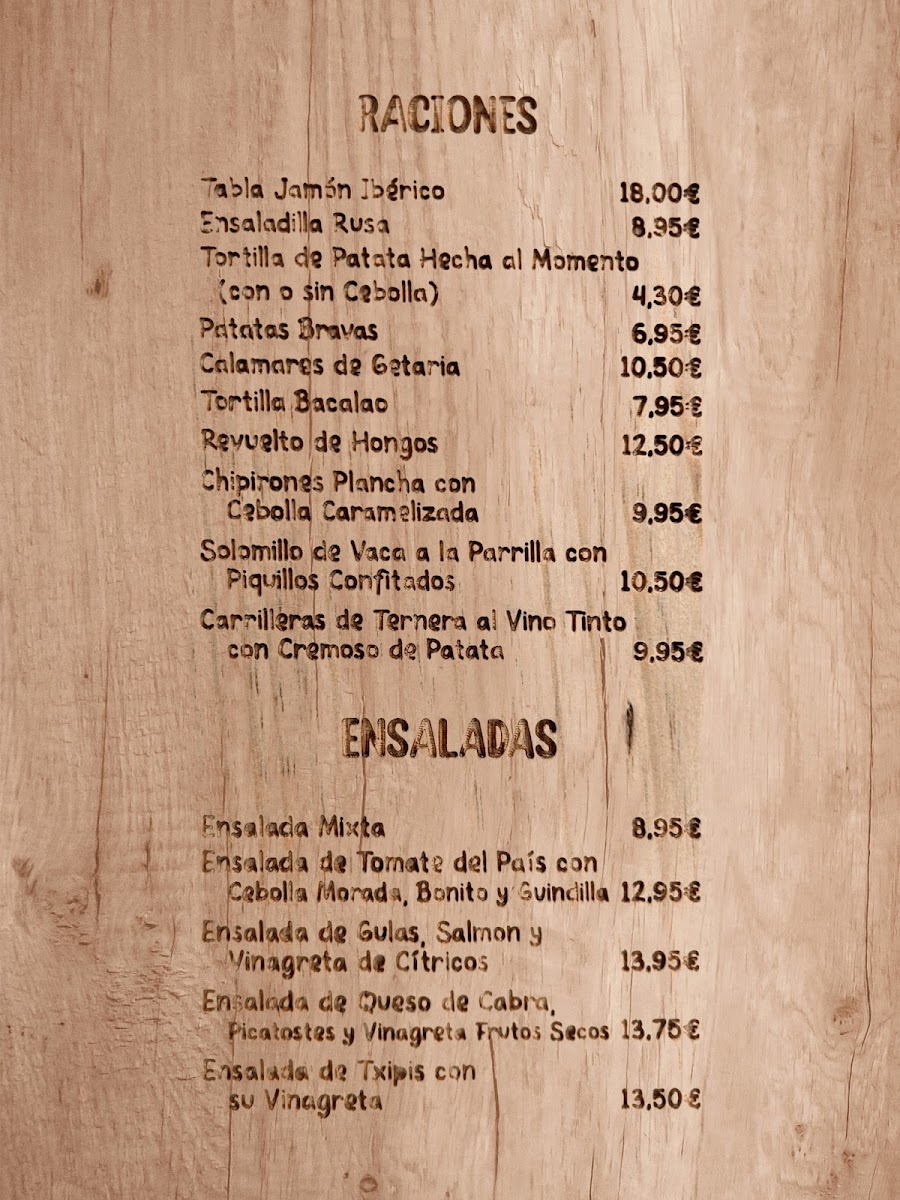 RACIONES
Tabla Jamón Ibérico 18,00€
Ensaladilla Rusa 8,95€
Tortilla de Patata Hecha al Momento
(con o sin Cebolla) 4,30€
Patatas Bravas 6,95€
Calamares de Getaria 10,50€
Tortilla Bacalao 7,95€
Revuelto de Hongos 12,50€
Chipirones Plancha con
Cebolla Caramelizada 9,95€
Solomillo de Vaca a la Parrilla con
Piquillos Confitados 10,50€
Carrilleras de Ternera al Vino Tinto
con Cremoso de Patata 9,95€
ENSALADAS
Ensalada Mixta 8,95€
Ensalada de Tomate del País con
Cebolla Morada, Bonito y Guindilla 12,95€
Ensalada de Gulas, Salmon y
Vinagreta de Cítricos 13,95€
Ensalada de Queso de Cabra,
Picatostes y Vinagreta Frutos Secos 13,75€
Ensalada de Txipis con
su Vinagreta 13,50€